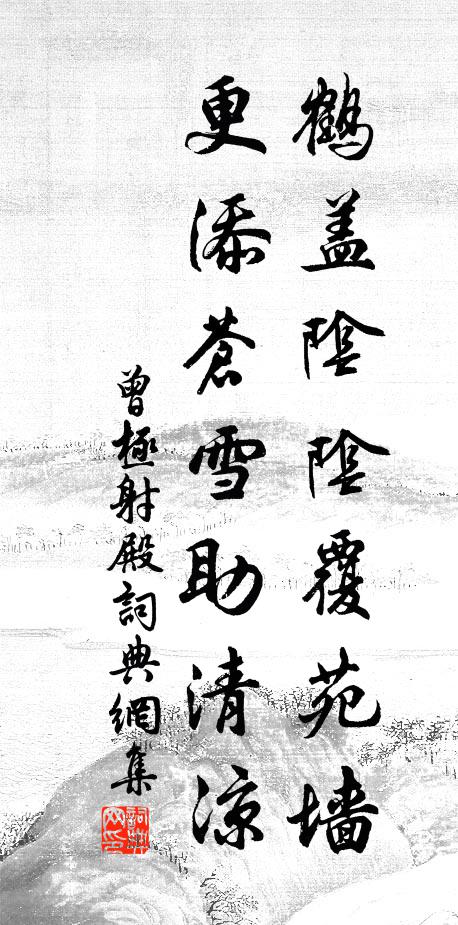 鶴盖陰陰覆苑墙
更添蒼雪助清涼
曾極射殿詞典網集
詞典網印